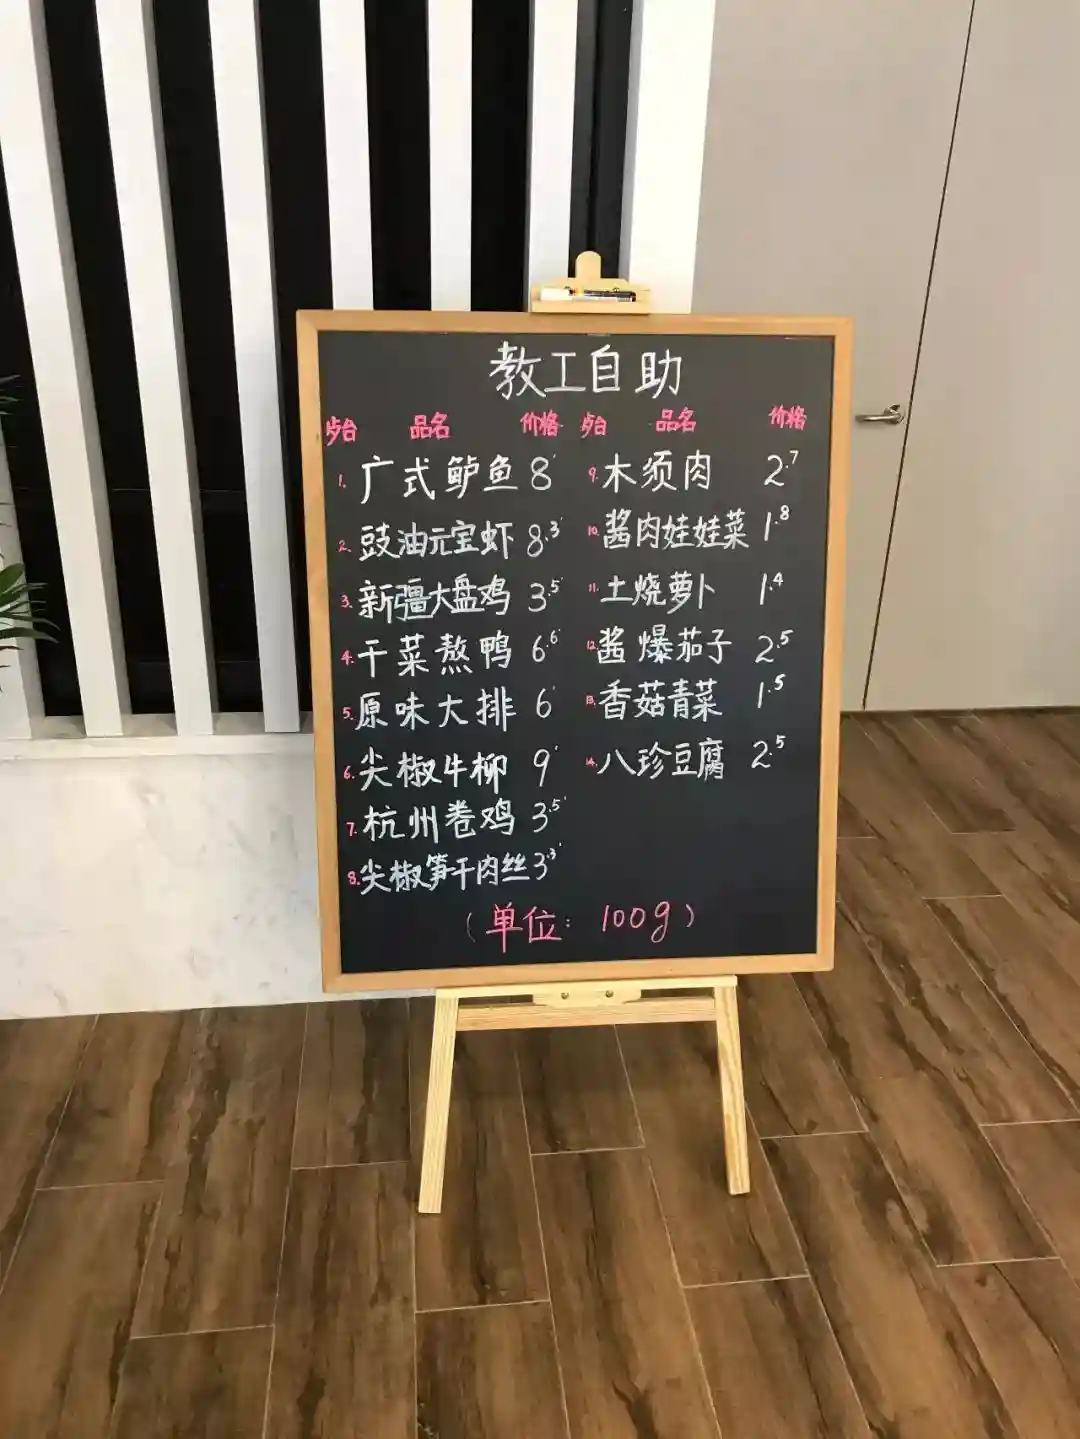 教工自助
品名 价格 品名 价格
1. 广式鲈鱼 8 9. 木须肉 2.7
2. 豉油元宝虾 8.3 10. 酱肉娃娃菜 1.8
3. 新疆大盘鸡 3.5 11. 土烧萝卜 1.4
4. 干菜熬鸭 6.6 12. 酱爆茄子 2.5
5. 原味大排 6 13. 香菇青菜 1.5
6. 尖椒牛柳 9 14. 八珍豆腐 2.5
7. 杭州卷鸡 3.5
8. 尖椒笋干肉丝 3.3
(单位: 100g)